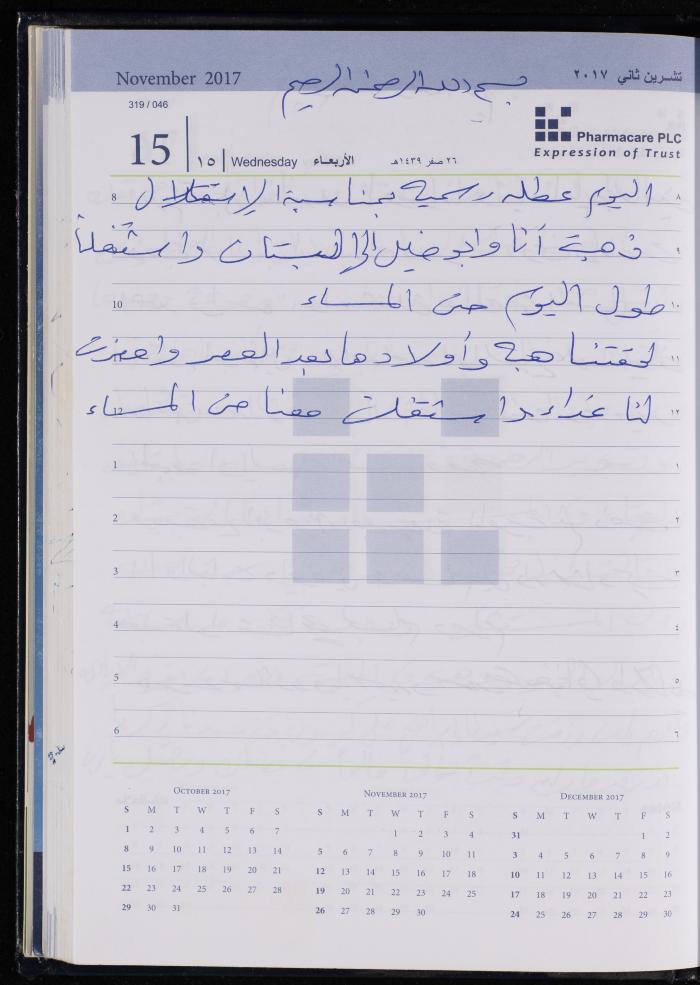 November 2017
بسم الله الرحمن الرحيم
تشرين ثاني ٢٠١٧
319 / 046
15 | ١٥ | Wednesday الأربعاء
٢٦ صفر ١٤٣٩هـ
Pharmacare PLC
Expression of Trust
8 اليوم عطله رسميه بمناسبة الإستقلال ٨
ذهبت أنا وابو خليل إلى البستان واشتغلنا ٩
10 طول اليوم حتى المساء ١٠
11 لحقتنا هبه وأولادها بعد العصر واحضرت ١١
12 لنا غداء واشتغلت معنا حتى المساء ١٢
1 ١
2 ٢
3 ٣
4 ٤
5 ٥
6 ٦
October 2017
S M T W T F S
1 2 3 4 5 6 7
8 9 10 11 12 13 14
15 16 17 18 19 20 21
22 23 24 25 26 27 28
29 30 31
November 2017
S M T W T F S
1 2 3 4
5 6 7 8 9 10 11
12 13 14 15 16 17 18
19 20 21 22 23 24 25
26 27 28 29 30
December 2017
S M T W T F S
31 1 2
3 4 5 6 7 8 9
10 11 12 13 14 15 16
17 18 19 20 21 22 23
24 25 26 27 28 29 30